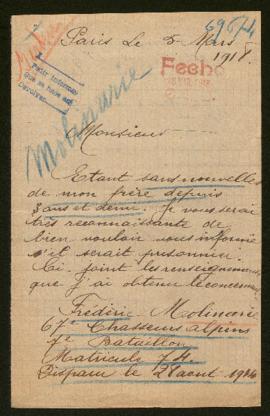 69514
Paris Le 5 Mars
1918
Fecha
Pedir informes
Monsieur
Molinurie
Etant sans nouvelles
de mon frère depuis
3 ans et demi. Je vous serai
très reconnaissante de
bien vouloir vous informer
s'il serait prisonnier.
Ci. joint les renseignements
que j'ai obtenu le concernant
Frédéric Molinerie
67e Chasseurs alpins
7e Bataillon
Matricule 74.
Disparu le 21 aout 1914